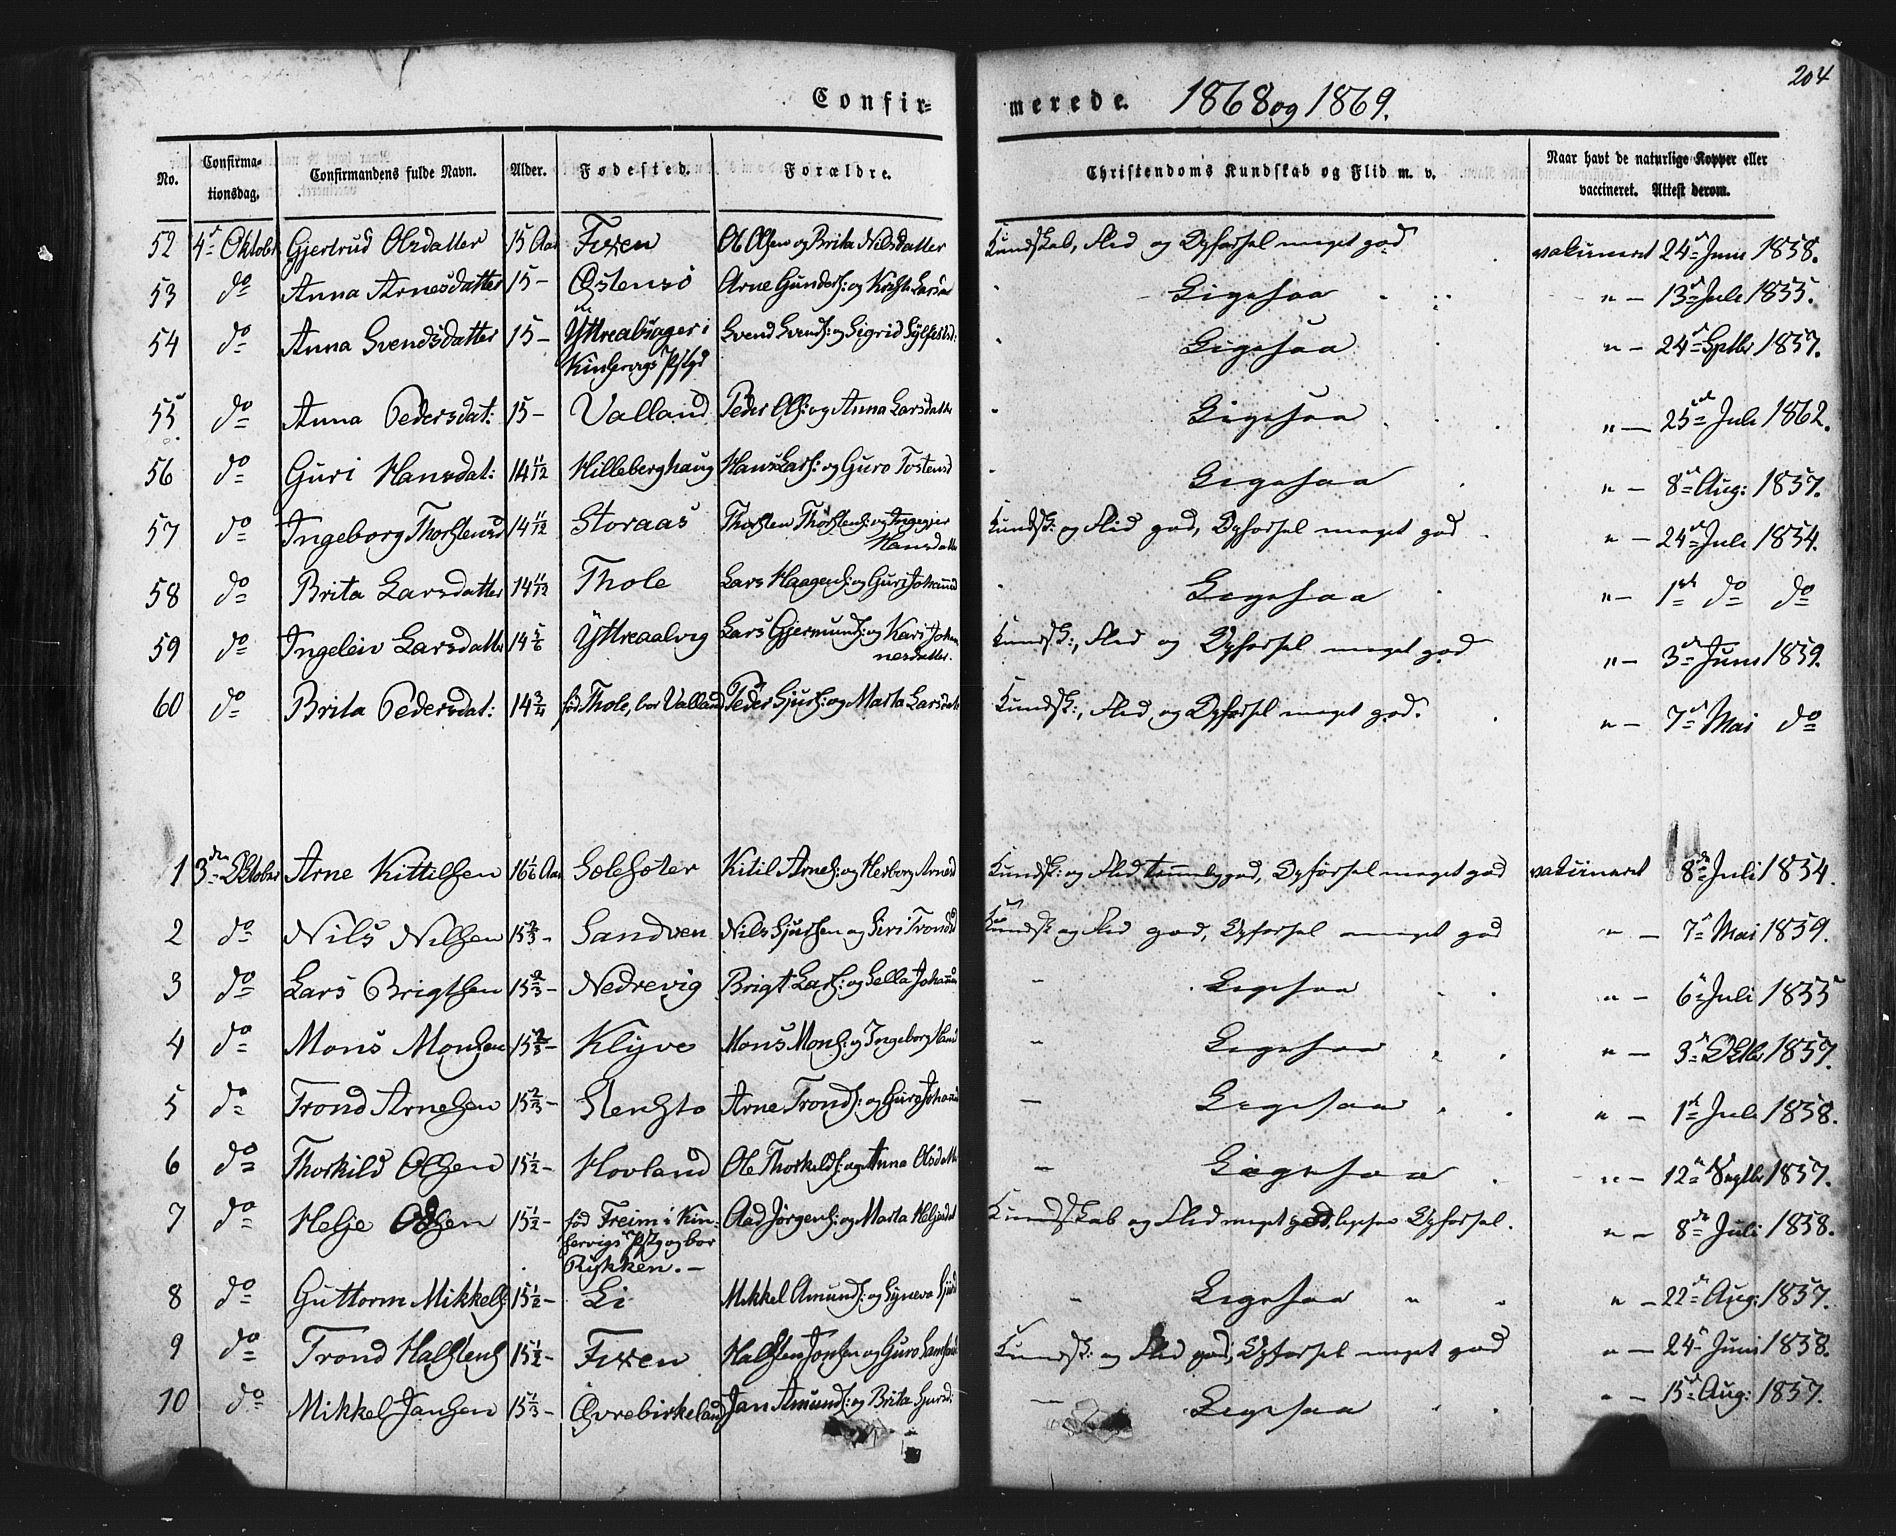 204
Confir- merede. 1868 og 1869.
No. Confirma-tionsdag. Confirmandens fulde Navn. Alder. Fødested. Forældre. Christendoms Kundskab og Flid m. v. Naar havt de naturlige Kopper eller vaccineret. Attest derom.
52 4de Oktober Gjertrud Olsdatter 15 Aar Fixen Ole Olsen og Brita Nilsdatter Kundskab, Flid og Opførsel meget god vakcineret 24de Juni 1858.
53 do Anna Arnesdatter 15 - Østensö Arne Gunders: og Ligesaa " - 13de Juli 1855.
54 do Anna Svendsdatter 15 - Yttreabsager i Svend Svends: og Sigrid Ligesaa " - 24de Septbr 1857.
Kinservigs Pstgd
55 do Anna Pedersdat: 15 - Valland Peder Ols: og Anna Larsdatter Ligesaa " - 25de Juli 1862.
56 do Guri Hansdat: 14 11/12 Hilleberghaug Hans Lars: og Guro Tostensd Ligesaa " - 8de Aug: 1857.
57 do Ingeborg Thorstensd 14 11/12 Storaas Thorsten Thorstens: og Ingegjer Kundsk: og Flid god, Opførsel meget god " - 24de Juli 1854.
Hansdatter
58 do Brita Larsdatter 14 11/12 Thole Lars Haagens: og Guri Johannesd Ligesaa " - 1ste do do
59 do Ingeleiv Larsdatter 14 5/6 Yttreaalvig Lars Gjermunds: og Kari Johan- Kundsk:, Flid og Opførsel meget god " - 3de Juni 1859.
nesdatter.
60 do Brita Pedersdat: 14 3/4 fød Thole, bor Valland Peder Sjurs: og Marta Larsdatt Kundsk:, Flid og Opførsel meget god. " - 7de Mai do
1 3de Oktober Arne Kittilsen 16 1/6 Aar Solesoter Kitil Arnes: og Herborg Arnesd Kundsk: og Flid temmelig god, Opførsel meget god vakcineret 8de Juli 1854.
2 do Nils Nilsen 15 2/3 - Sandven Nils Sjursen og Siri Trondsd Kundsk og Flid god, Opførsel meget god " - 7de Mai 1859.
3 do Lars Brigtsen 15 2/3 - Nedrevig Brigt Lars: og Sella Johannes Ligesaa " - 6te Juli 1855
4 do Mons Monsen 15 2/3 - Klyve Mons Mons: og Ingeborg Ligesaa " - 3de Oktbr 1857.
5 do Trond Arnesen 15 2/3 - Stensto Arne Tronds: og Guro Johannes Ligesaa " - 1ste Juli 1858.
6 do Thorkild Olsen 15 1/2 - Hovland Ole Thorkilds: og Anna Olsdatter Ligesaa " - 12te Septbr 1857.
7 do Helje Odsen 15 1/2 - fød Freim i Kin- Aad Jørgens: og Marta Heljesdat Kundskab og Flid meget god, Opførsel. " - 8de Juli 1858.
servigs Pstg og bor
Rykken. -
8 do Guttorm Mikkels: 15 1/2 - Li Mikkel Amunds: og Syneva Ligesaa " " " - 22de Aug: 1857.
9 do Trond Halstens 15 1/2 - Fixen Halsten Jonsen og Guro Kundsk: og Flid god, Opførsel meget god " - 24de Juni 1858.
10 do Mikkel Jansen 15 1/3 - Øvrebirkeland Jan Amunds: og Brita Sjursd: Ligesaa " - 15de Aug: 1857.